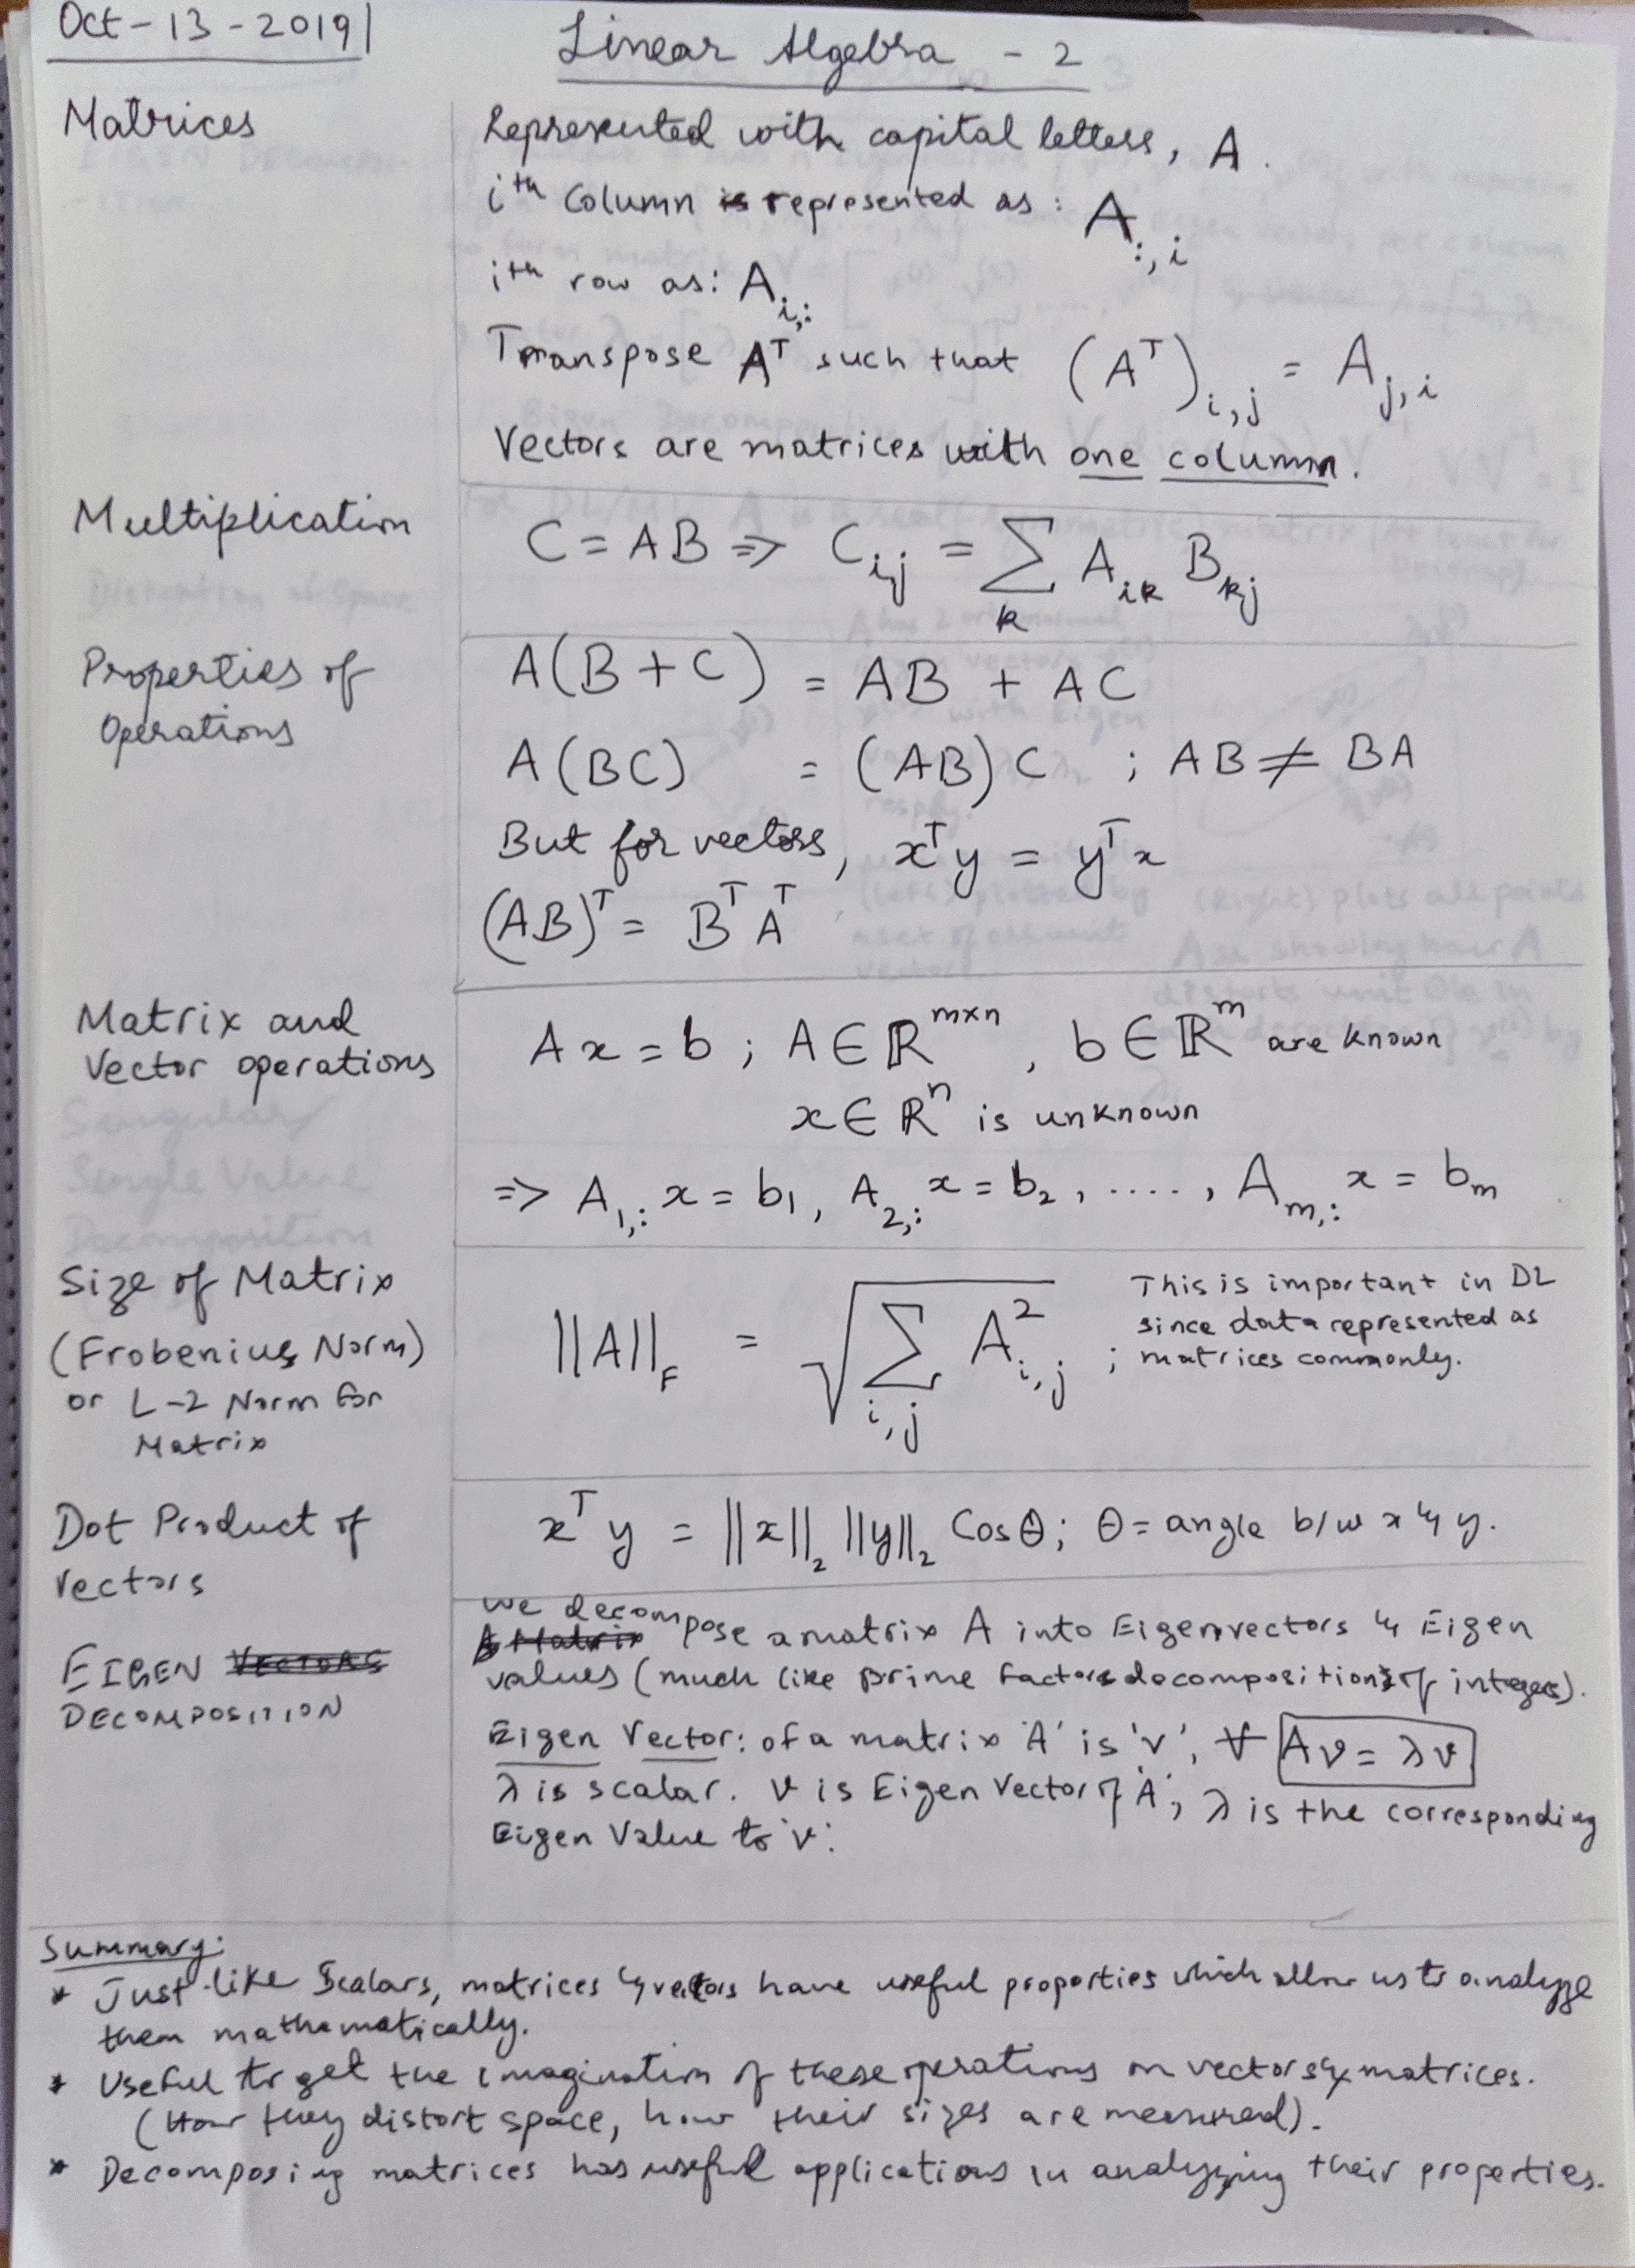 Oct-13-2019
Linear Algebra - 2
Matrices
Represented with capital letters, A.
i^th Column is represented as: A_{:,i}
i^th row as: A_{i,:}
Transpose A^T such that (A^T)_{i,j} = A_{j,i}
Vectors are matrices with one column.
Multiplication
C = AB => C_{ij} = ∑_k A_{ik} B_{kj}
Properties of
Operations
A(B+C) = AB + AC
A(BC) = (AB)C ; AB ≠ BA
But for vectors, x^T y = y^T x
(AB)^T = B^T A^T
Matrix and
Vector operations
Ax = b ; A ∈ ℝ^{m×n}, b ∈ ℝ^m are known
x ∈ ℝ^n is unknown
=> A_{1,:} x = b_1, A_{2,:} x = b_2, ...., A_{m,:} x = b_m
Size of Matrix
(Frobenius Norm)
or L-2 Norm for
Matrix
||A||_F = √(∑_{i,j} A^2_{i,j}) ;
This is important in DL
since data represented as
matrices commonly.
Dot Product of
Vectors
x^T y = ||x||_2 ||y||_2 Cos θ; θ = angle b/w x & y.
EIGEN VECTORS
DECOMPOSITION
We decompose a matrix A into Eigenvectors & Eigen
values (much like prime factors decomposition of integers).
Eigen Vector: of a matrix 'A' is 'v', ∀ Av = λv
λ is scalar. v is Eigen Vector of 'A', λ is the corresponding
Eigen Value to 'v'.
Summary:
* Just like Scalars, matrices & vectors have useful properties which allow us to analyze
them mathematically.
* Useful to get the imagination of these operations on vectors & matrices.
(How they distort space, how their sizes are measured).
* Decomposing matrices has useful applications in analyzing their properties.